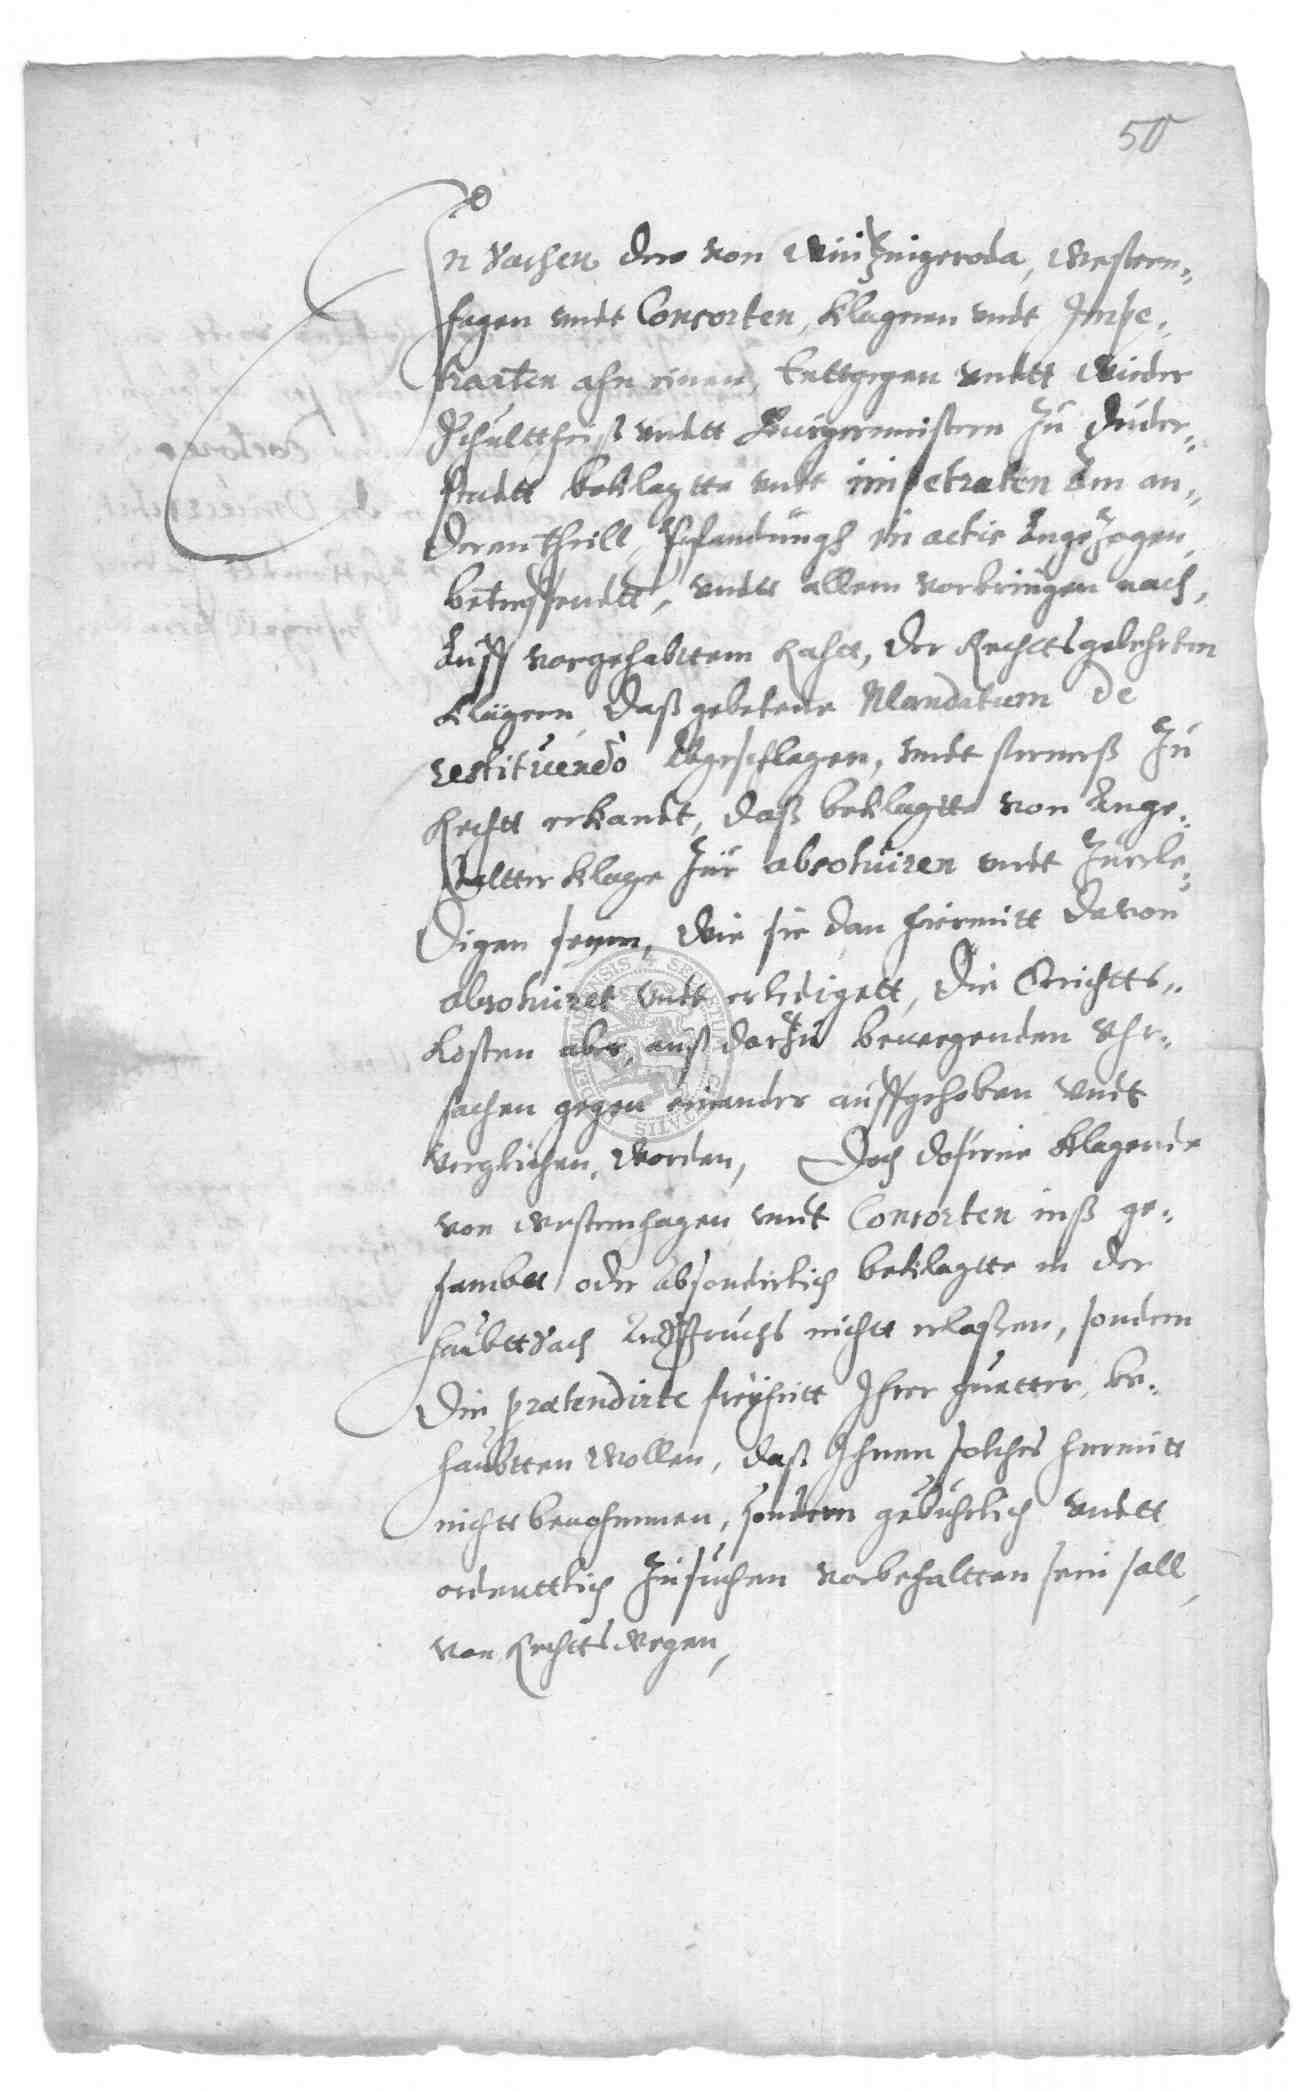 50
In Sachen derer von Wintzingeroda, Western„
hagen undt Consorten, Klagenn undt Impe„
tranten ahn einem, Enttgegen undtt wieder
Schulttheiß undtt Burgermeistern Zu Duder„
stadtt beklagtte undt impetraten Am an„
deren theill, Pfandungh in actis Angezogen
betreffendtt, undtt allem vorbringen nach,
Auff vorgehabttem Rahtt, der Rechttsgelehrten
Klägern, daß gebetene Mandatum de
restituendo Abgeschlagen, undt ferners Zu
Rechtt erkandt, daß beklagtte von Ange„
staltter Klage Zur absolviren undt Zuerle„
digen seyen, Wie sie dan hiermitt davon
absolviret undt erledigett, die Gerichtts„
Kosten aber, auß darzu bewegenden Uhr„
sachen gegen einander auffgehoben undt
verglichen, worden, Doch doferne Klagende
von Westernhagen undt Consorten inß ge„
sambtt oder absonderlich beklagtte in der
haubttsach Anspruchs nichtt erlaßen, sondern
die prætendirte freyheitt Ihrer guetter be„
haubtten wollen, daß Ihnen solches hermitt
nichtt benohmmen, sondern gebuhrlich undtt
ordenttlich Zusuchen vorbehaltten sein soll
von Rechtts wegen,